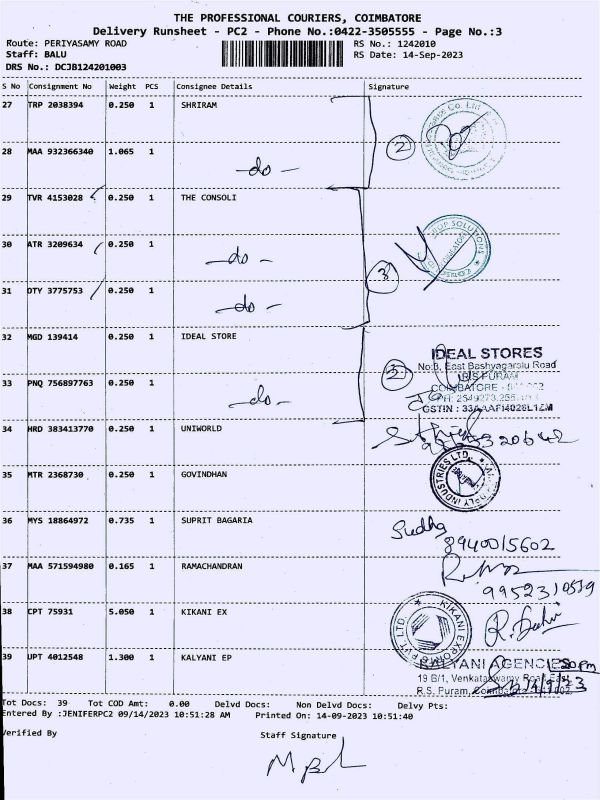 THE PROFESSIONAL COURIERS, COIMBATORE
Delivery Runsheet - PC2 - Phone No.:0422-3505555 - Page No.:3
Route: PERIYASAMY ROAD RS No.: 1242010
Staff: BALU RS Date: 14-Sep-2023
DRS No.: DCJB124201003
S No Consignment No Weight PCS Consignee Details Signature
27 TRP 2038394 0.250 1 SHRIRAM
28 MAA 932366340 1.065 1
-do- 2
29 TVR 4153028 0.250 1 THE CONSOLI
30 ATR 3209634 0.250 1
-do- 3
31 DTY 3775753 0.250 1
-do-
32 MGD 139414 0.250 1 IDEAL STORE
IDEAL STORES
No:8, East Bashyagaralu Road
33 PNQ 756897763 0.250 1
-do-
COIMBATORE
GSTIN : 33AAAFI4028L1ZM
34 HRD 383413770 0.250 1 UNIWORLD
35 MTR 2368730 0.250 1 GOVINDHAN
36 MYS 18864972 0.735 1 SUPRIT BAGARIA
Sudha
8940015602
37 MAA 571594980 0.165 1 RAMACHANDRAN
9952310539
38 CPT 75931 5.050 1 KIKANI EX
KIKANI EXPORTS PVT. LTD.
39 UPT 4012548 1.300 1 KALYANI EP
KALYANI AGENCIES
19 B/1, Venkataswamy Road East
R.S. Puram, Coimbatore
14/9/23
Tot Docs: 39 Tot COD Amt: 0.00 Delvd Docs: Non Delvd Docs: Delvy Pts:
Entered By :JENIFERPC2 09/14/2023 10:51:28 AM Printed On: 14-09-2023 10:51:40
Verified By Staff Signature